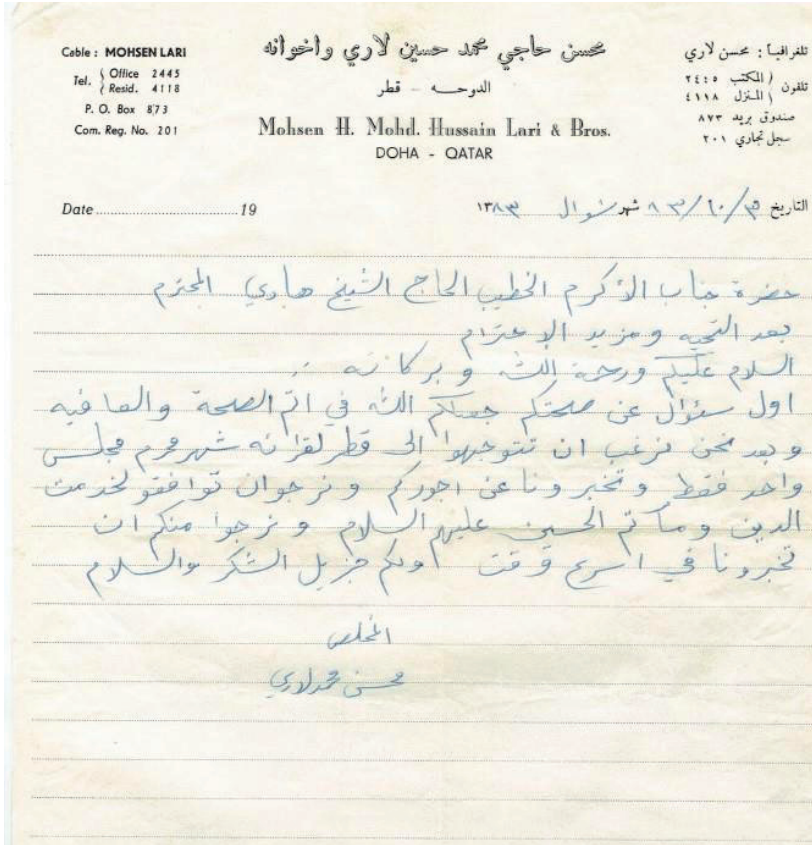 Cable : MOHSEN LARI
Tel. ( Office 2445
( Resid. 4118
P. O. Box 873
Com. Reg. No. 201
محسن حاجي محمد حسين لاري واخوانه
الدوحه - قطر
Mohsen H. Mohd. Hussain Lari & Bros.
DOHA - QATAR
تلغرافياً : محسن لاري
تلفون ( المكتب ٢٤٤٥
( المنزل ٤١١٨
صندوق بريد ٨٧٣
سجل تجاري ٢٠١
Date ........................ 19
التاريخ ٨٣/١٠/ شهر شوال ١٣٨٣
حضرة جناب الأكرم الخطيب الحاج الشيخ هادي المحترم
بعد التحيه ومزيد الإحترام
السلام عليكم ورحمة الله وبركاته
اول سئوال عن صحتكم جعلكم الله في اتم الصحة والعافيه
وبعد نحن نرغب ان تتوجهوا الى قطر لقرائه شهر محرم مجلس
واحد فقط وتخبرونا عن اجوركم ونرجوان توافقو لخدمت
الدين ومأتم الحسين عليهم السلام ونرجوا منكم ان
تخبرونا في اسرع وقت ولكم جزيل الشكر والسلام
المخلص
محسن محمد لاري